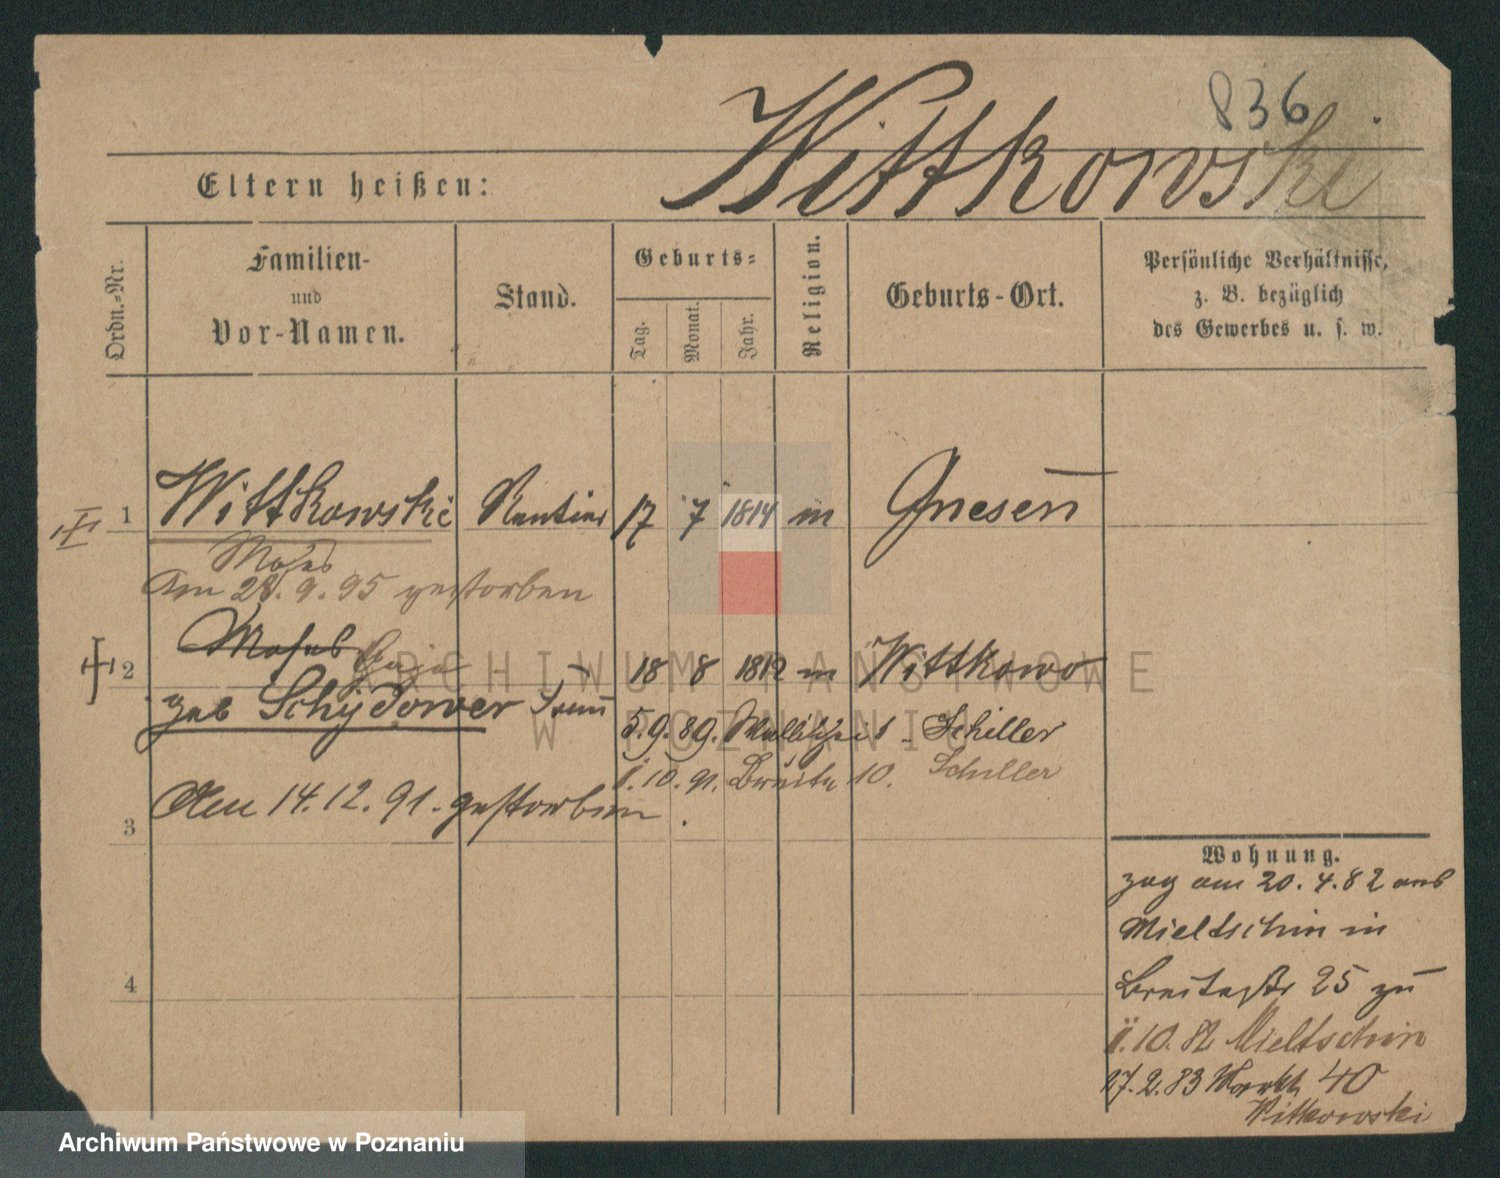 836
Wittkowski
Eltern heißen:
Ordn.-Nr.
Familien-
und
Vor-Namen.
Stand.
Geburts-
Tag.
Monat.
Jahr.
Religion.
Geburts-Ort.
Persönliche Verhältnisse,
z. B. bezüglich
des Gewerbes u. s. w.
1 Wittkowski Rentier 17 7 1814 m Gnesen
Moses
Am 28. 9. 95 gestorben
2 Moses 18 8 1812 m Wittkowo
geb Schydower Frau
5. 9. 89. 1 Schiller
10. 91. Breite 10. Schiller
Den 14. 12. 91. gestorben.
3
4
Wohnung.
zog am 20. 4. 82 aus
Mieltschin in
Breitestr 25 zu
10. 82 Mieltschin
27. 2. 83 Markt 40
Witkowski
ARCHIWUM PAŃSTWOWE
W POZNANIU
Archiwum Państwowe w Poznaniu